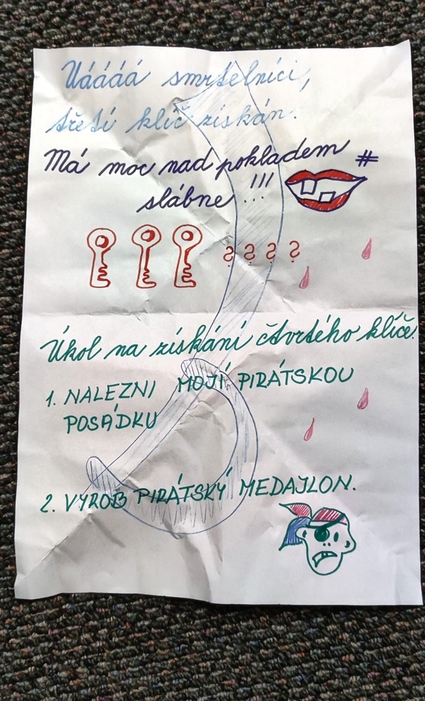 Uáááá smrtelníci,
třetí klíč získán.
Má moc nad pokladem
slábne !!!
#
? ? ? ?
Úkol na získání čtvrtého klíče.
1. NALEZNI MOJÍ PIRÁTSKOU
POSÁDKU
2. VYROB PIRÁTSKÝ MEDAJLON.